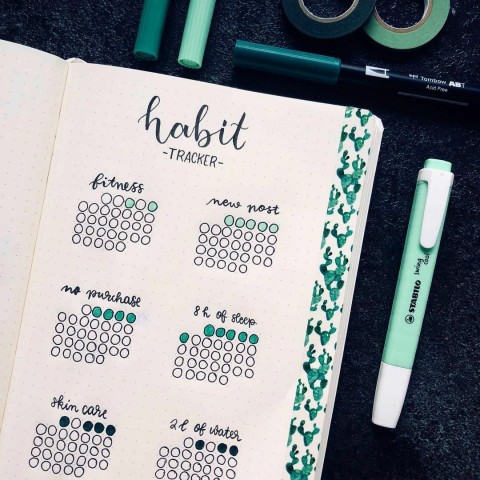 habit
-TRACKER-
fitness
new post
no purchase
8 h of sleep
skin care
2 l of water
Tombow ABT
Acid Free
STABILO
swing cool